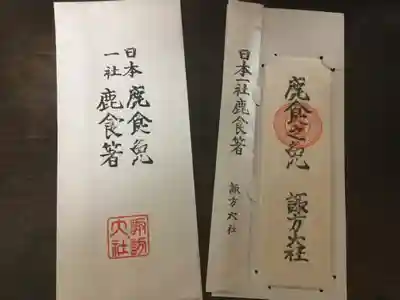 日本 鹿食免
一社 鹿食箸
諏訪
大社
日本一社鹿食箸 諏方大社
鹿食之免 諏方大社